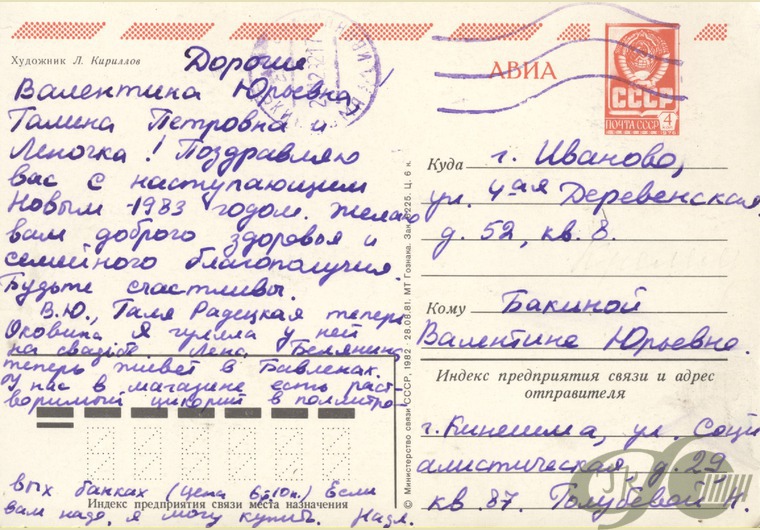 Художник Л. Кириллов
Дорогие
Валентина Юрьевна,
Галина Петровна и
Леночка! Поздравляю
вас с наступающим
Новым 1983 годом. Желаю
вам доброго здоровья и
семейного благополучия.
Будьте счастливы.
В.Ю., Галя Радецкая теперь
Оковина. Я гуляла у ней
на свадьбе. Лена Белянина
теперь живёт в Бавленах.
У нас в магазине есть раст-
воримый цикорий в поллитро-
вых банках (цена 6-10к.) Если
Индекс предприятия связи места назначения
вам надо, я могу купить. Надя.
© Министерство связи СССР, 1982 · 28.08.81. МТ Гознака. Зак. 225. Ц. 6 к.
АВИА
СССР
ПОЧТА СССР
4
Куда г. Иваново,
ул. 4ая Деревенская
д. 52, кв. 8.
Кому Бакиной
Валентине Юрьевне.
Индекс предприятия связи и адрес
отправителя
г. Кинешма, ул. Соци
алистическая д. 29
кв 87. Голубевой Н.